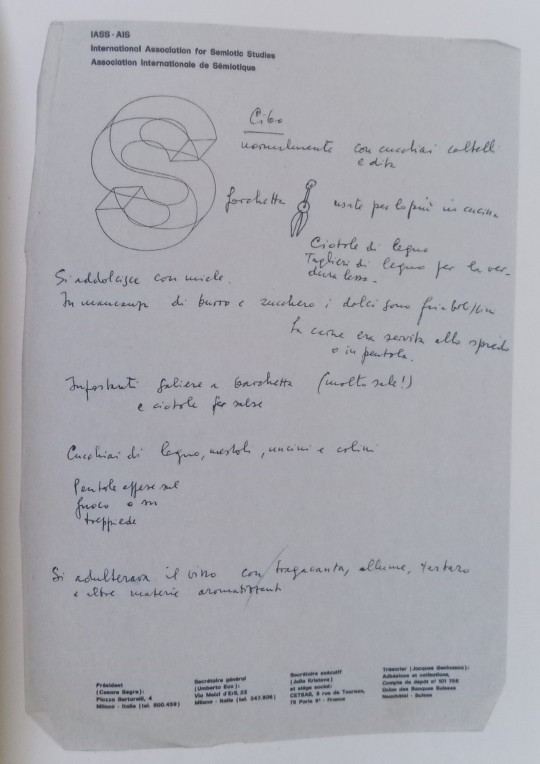 IASS - AIS
International Association for Semiotic Studies
Association Internationale de Sémiotique
Cibo
normalmente con cucchiai coltelli
e dita
forchetta usate per lo più in cucina
Ciotole di legno
Taglieri di legno per la ver-
dura lessa.
Si addolcisce con miele.
In mancanza di burro e zucchero i dolci sono friabilissimi
La carne era servita allo spiedo
o in pentola.
Importanti saliere a barchetta (molto sale!)
e ciotole per salse
Cucchiai di legno, mestoli, uncini e colini
Pentole appese sul
fuoco o su
treppiede
Si adulterava il vino con tragacanta, allume, tartaro
e altre materie aromatizzanti
Président
(Cesare Segre):
Piazza Bertarelli, 4
Milano - Italie (tel. 800.459)
Secrétaire général
(Umberto Eco):
Via Melzi d'Eril, 23
Milano - Italie (tel. 347.906)
Secrétaire exécutif
(Julia Kristeva)
et siège social:
CETSAS, 6 rue de Tournon,
75 Paris 6e - France
Trésorier (Jacques Geninasca):
Adhésions et cotisations,
Compte de dépôt n° 101 768
Union des Banques Suisses
Neuchâtel - Suisse